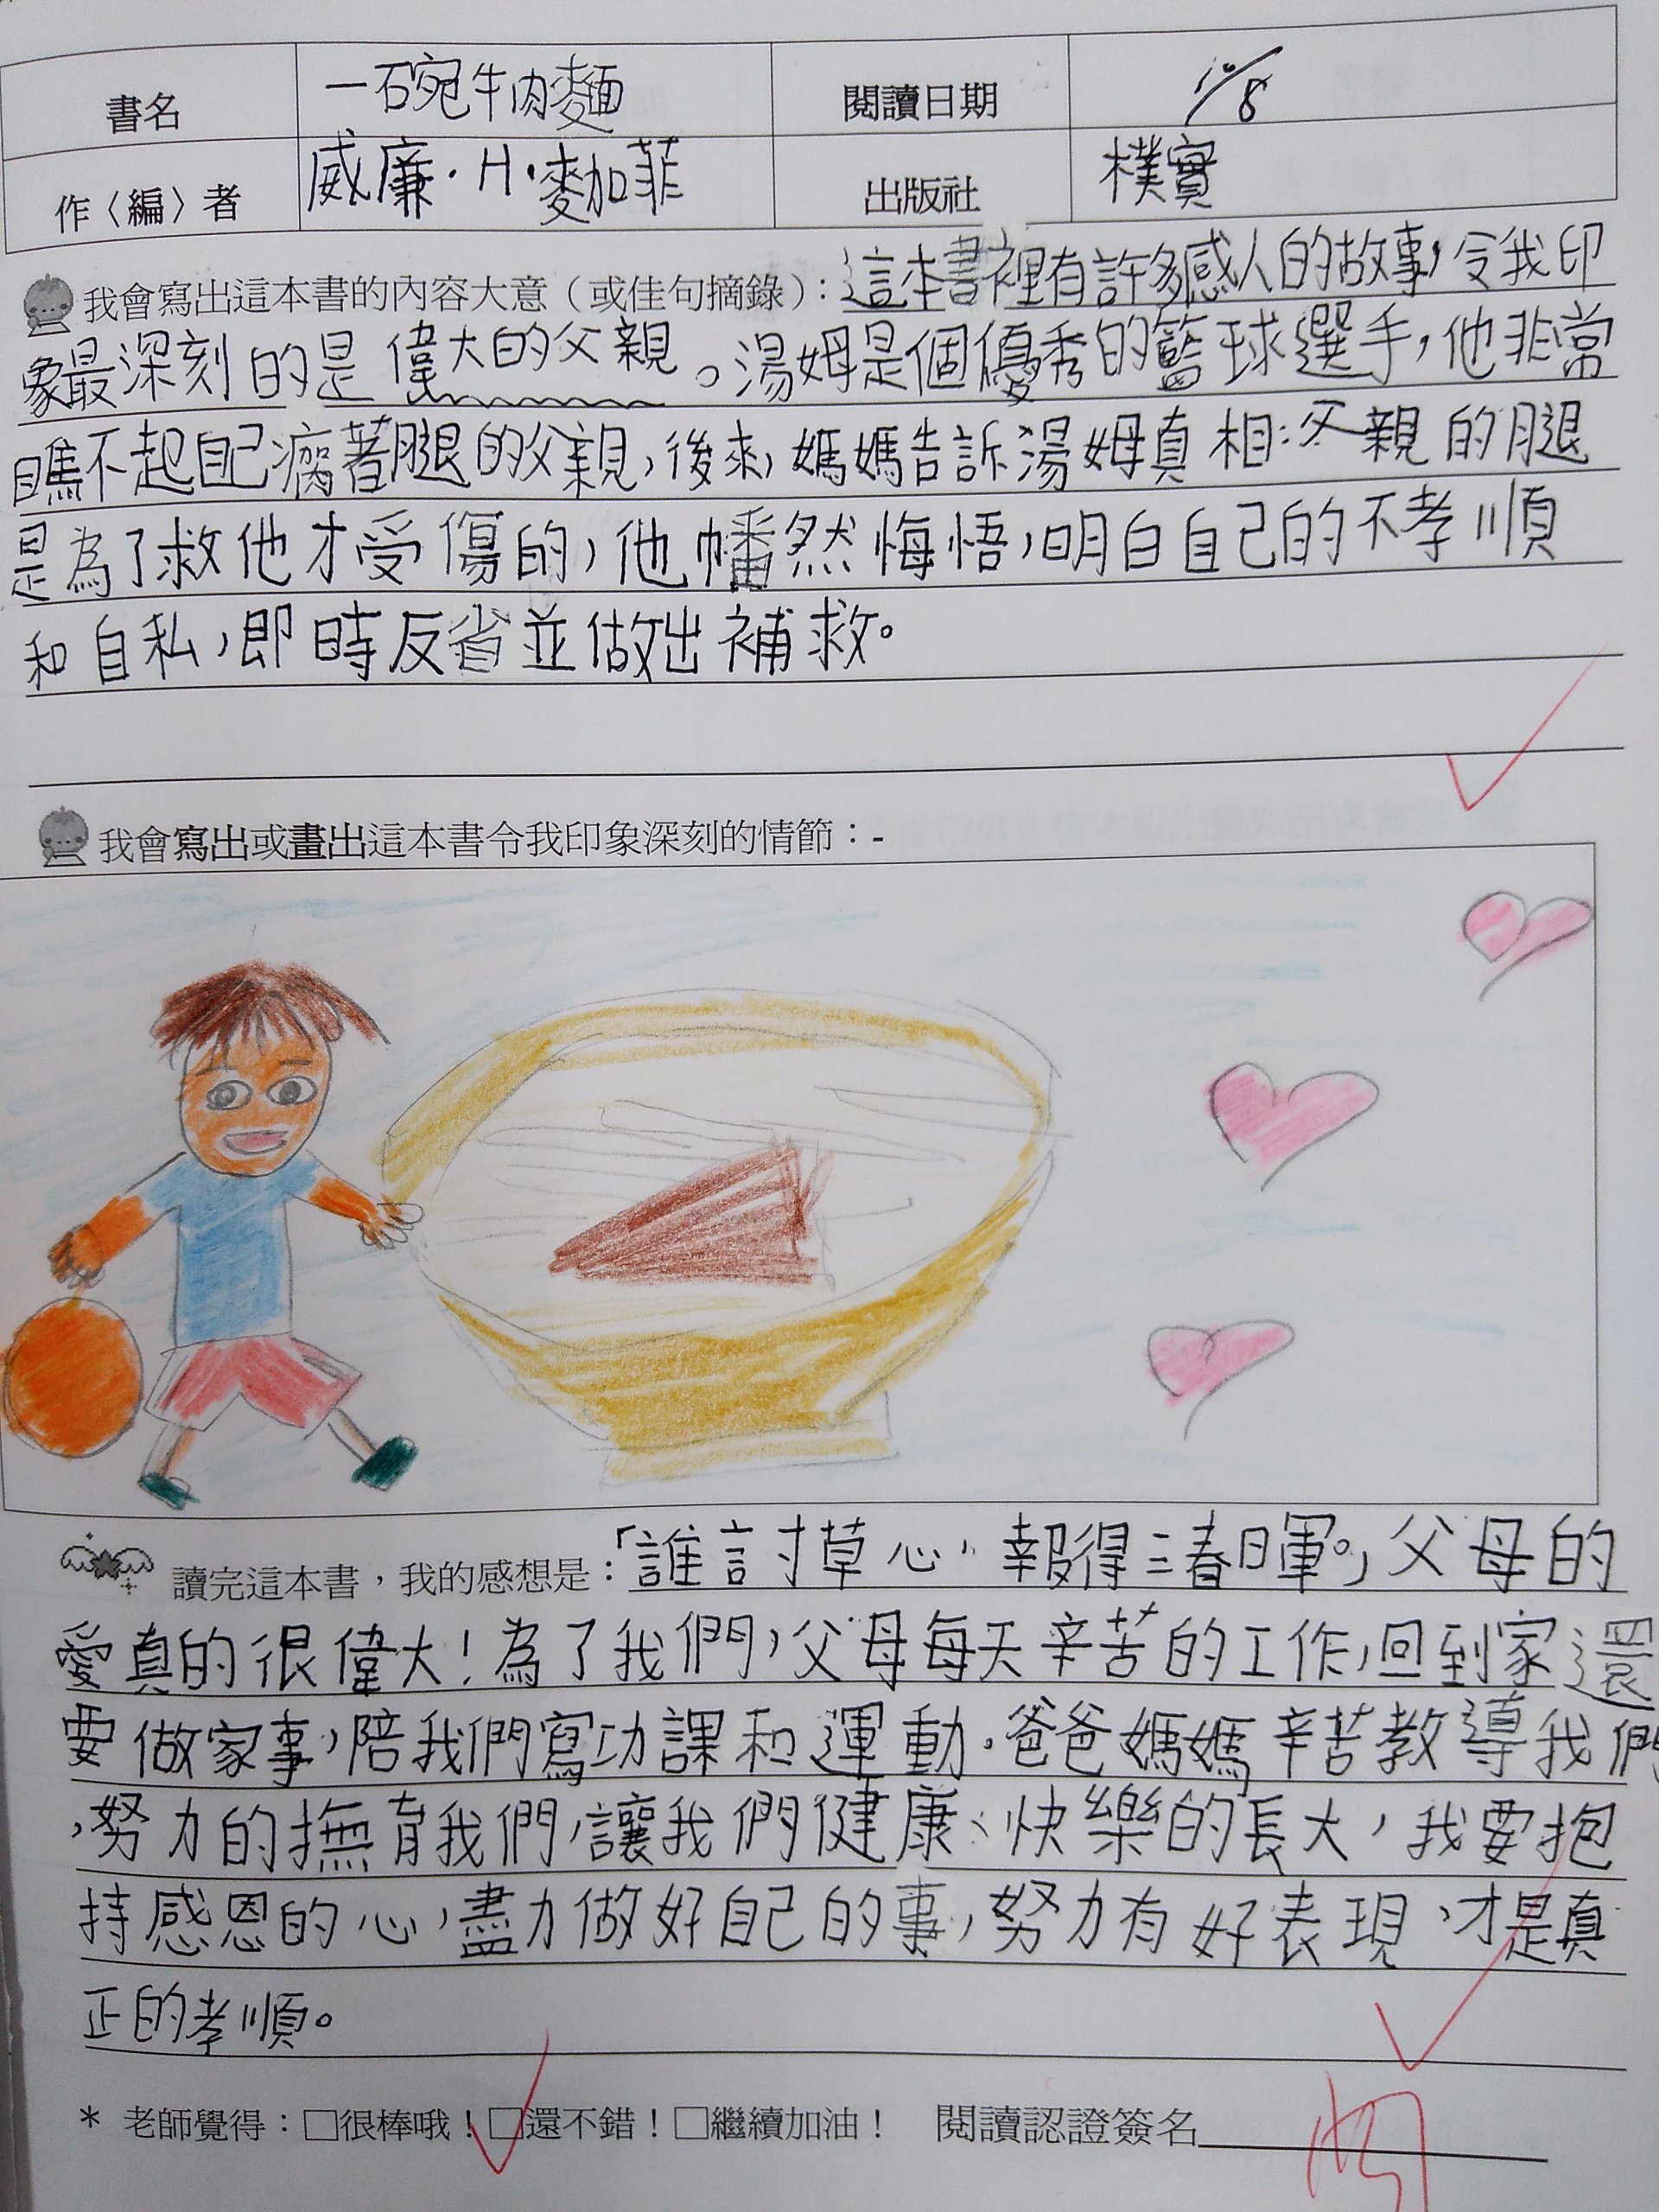 書名 一碗牛肉麵 閱讀日期 10/8
作〈編〉者 威廉·H·麥加菲 出版社 樸實
我會寫出這本書的內容大意（或佳句摘錄）：這本書裡有許多感人的故事，令我印
象最深刻的是偉大的父親。湯姆是個優秀的籃球選手，他非常
瞧不起自己瘸著腿的父親，後來，媽媽告訴湯姆真相：父親的腿
是為了救他才受傷的，他幡然悔悟，明白自己的不孝順
和自私，即時反省並做出補救。
我會寫出或畫出這本書令我印象深刻的情節：-
讀完這本書，我的感想是：「誰討草心，報得三春日暉。」父母的
愛真的很偉大！為了我們，父母每天辛苦的工作，回到家還
要做家事，陪我們寫功課和運動。爸爸媽媽辛苦教導我們
，努力的撫育我們，讓我們健康、快樂的長大，我要抱
持感恩的心，盡力做好自己的事，努力有好表現，才是真
正的孝順。
* 老師覺得：□很棒哦！□還不錯！□繼續加油！ 閱讀認證簽名